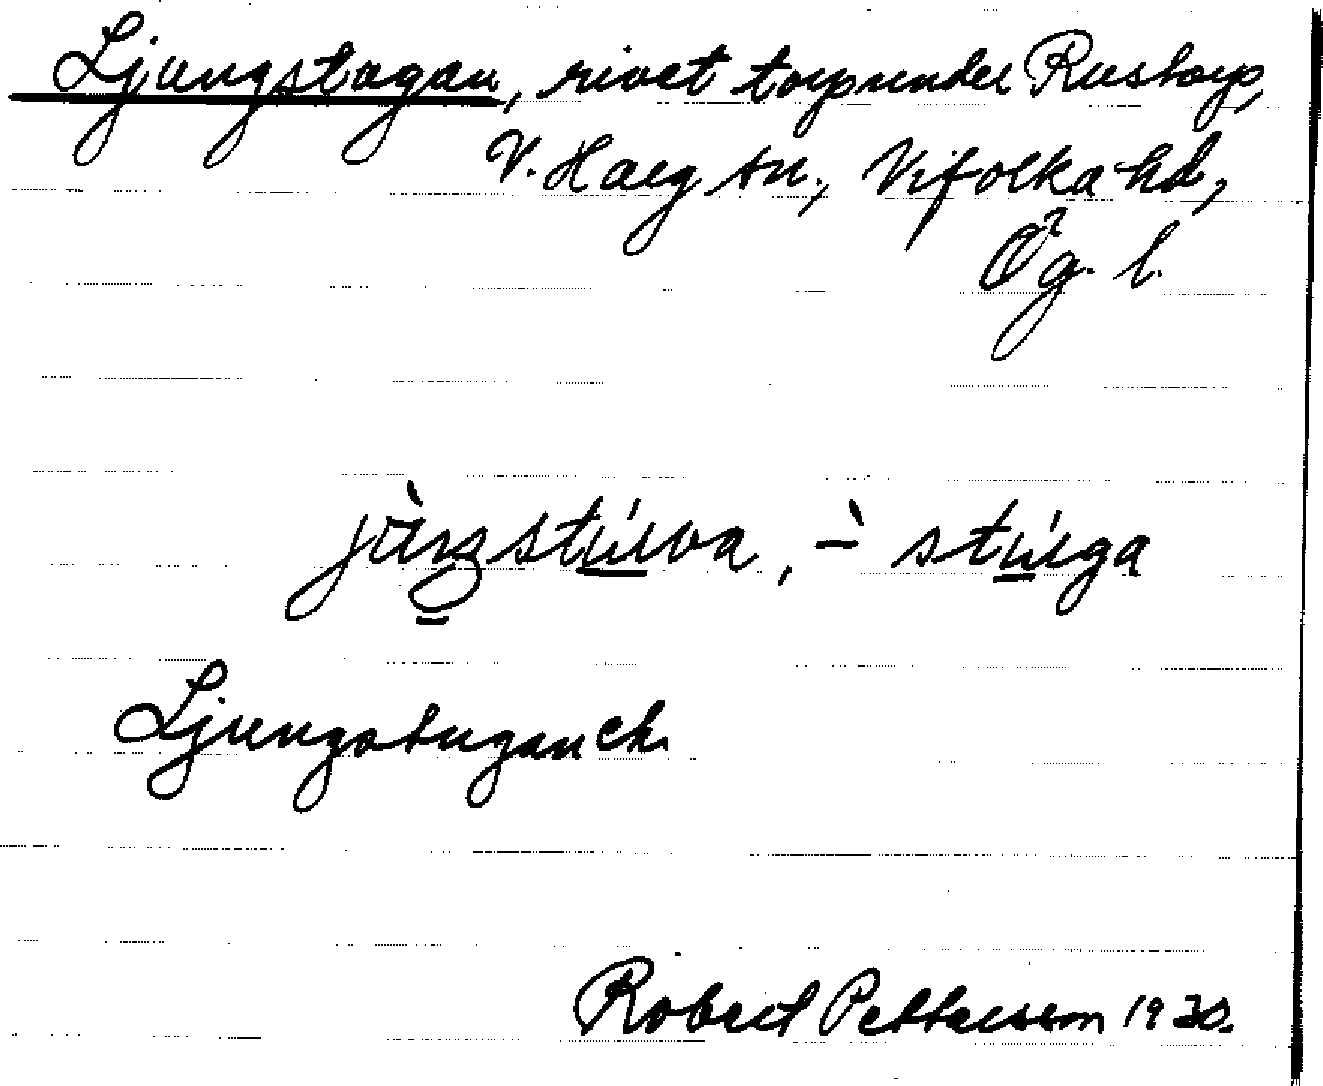 Ljungstugan, rivet torp under Rustorp,
V. Harg sn., Vifolka hd,
Ög. l.
Ljungstugan ek.
Robert Pettersson 1930.